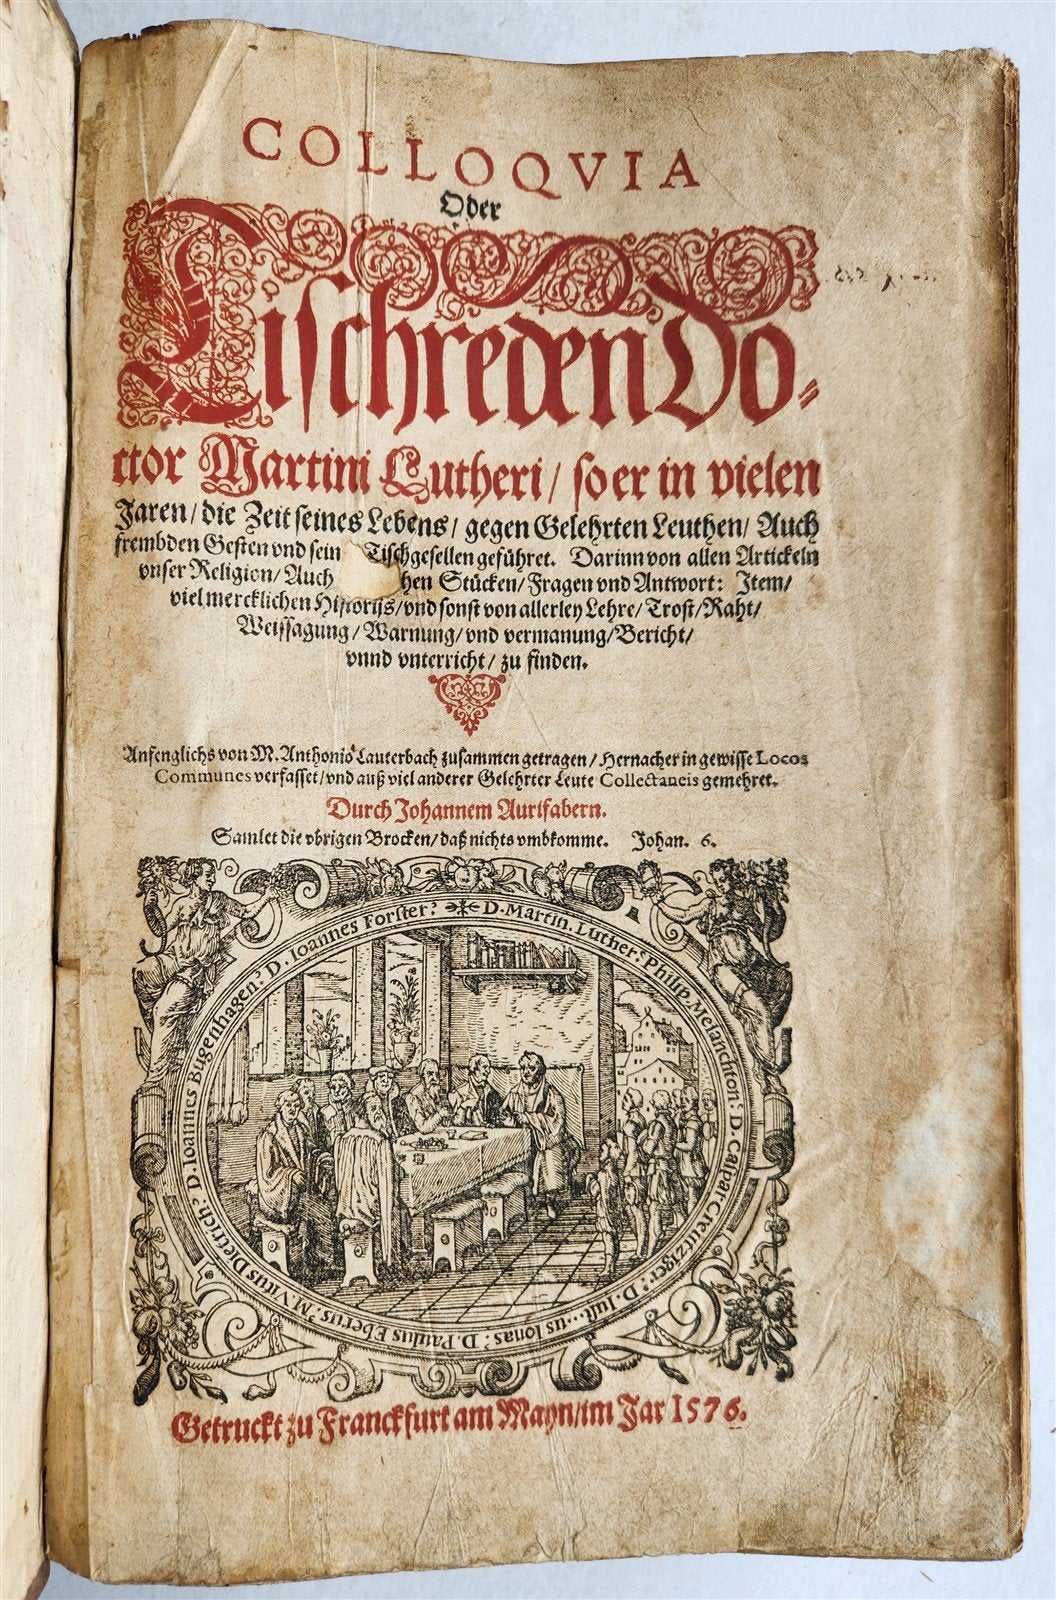 COLLOQVIA
Oder
Tischreden Do-
ctor Martini Lutheri / so er in vielen
Jaren / die Zeit seines Lebens / gegen Gelehrten Leuthen / Auch
frembden Gesten vnd sein Tischgesellen geführet. Darinn von allen Artickeln
vnser Religion / Auch hen Stücken / Fragen vnd Antwort: Item /
viel mercklichen Historijs / vnd sonst von allerley Lehre / Trost / Raht /
Weissagung / Warnung / vnd vermanung / Bericht /
vnnd vnterricht / zu finden.
Anfenglichs von M. Anthonio Lauterbach zusammen getragen / Hernacher in gewisse Locos
Communes verfasset / vnd auß viel anderer Gelehrter Leute Collectaneis gemehret.
Durch Johannem Aurifabern.
Samlet die vbrigen Brocken / daß nichts vmbkomme. Johan. 6.
D. Martin. Luther: Philip. Melanchton: D. Caspar Creutziger: D. Just...us Ionas: D. Paulus Eberus: M. Vitus Dietrich: D. Ioannes Bugenhagen: D. Ioannes Forster:
Getruckt zu Franckfurt am Mayn / im Jar 1576.